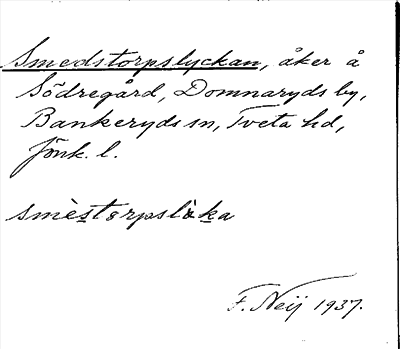 Smedstorpslyckan, åker å
Södregård, Domnaryds by,
Bankeryds sn, Tveta hd,
Jönk. l.
smèstorpslỳka
F. Neij 1937.